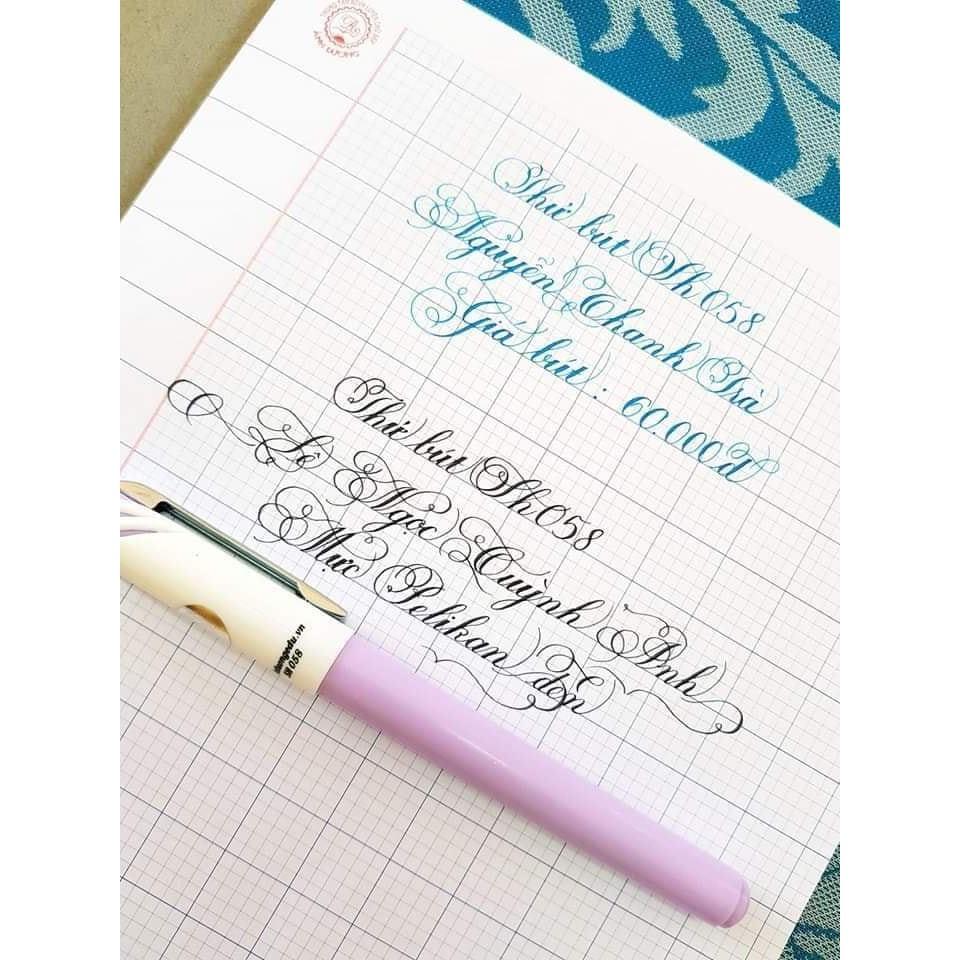 ÁNH DƯƠNG
Thử bút Sh 058
Nguyễn Thanh Trà
Giá bút: 60.000đ
Thử bút Sh 058
Lê Ngọc Quỳnh Anh
Mực Pelikan đen
SH 058